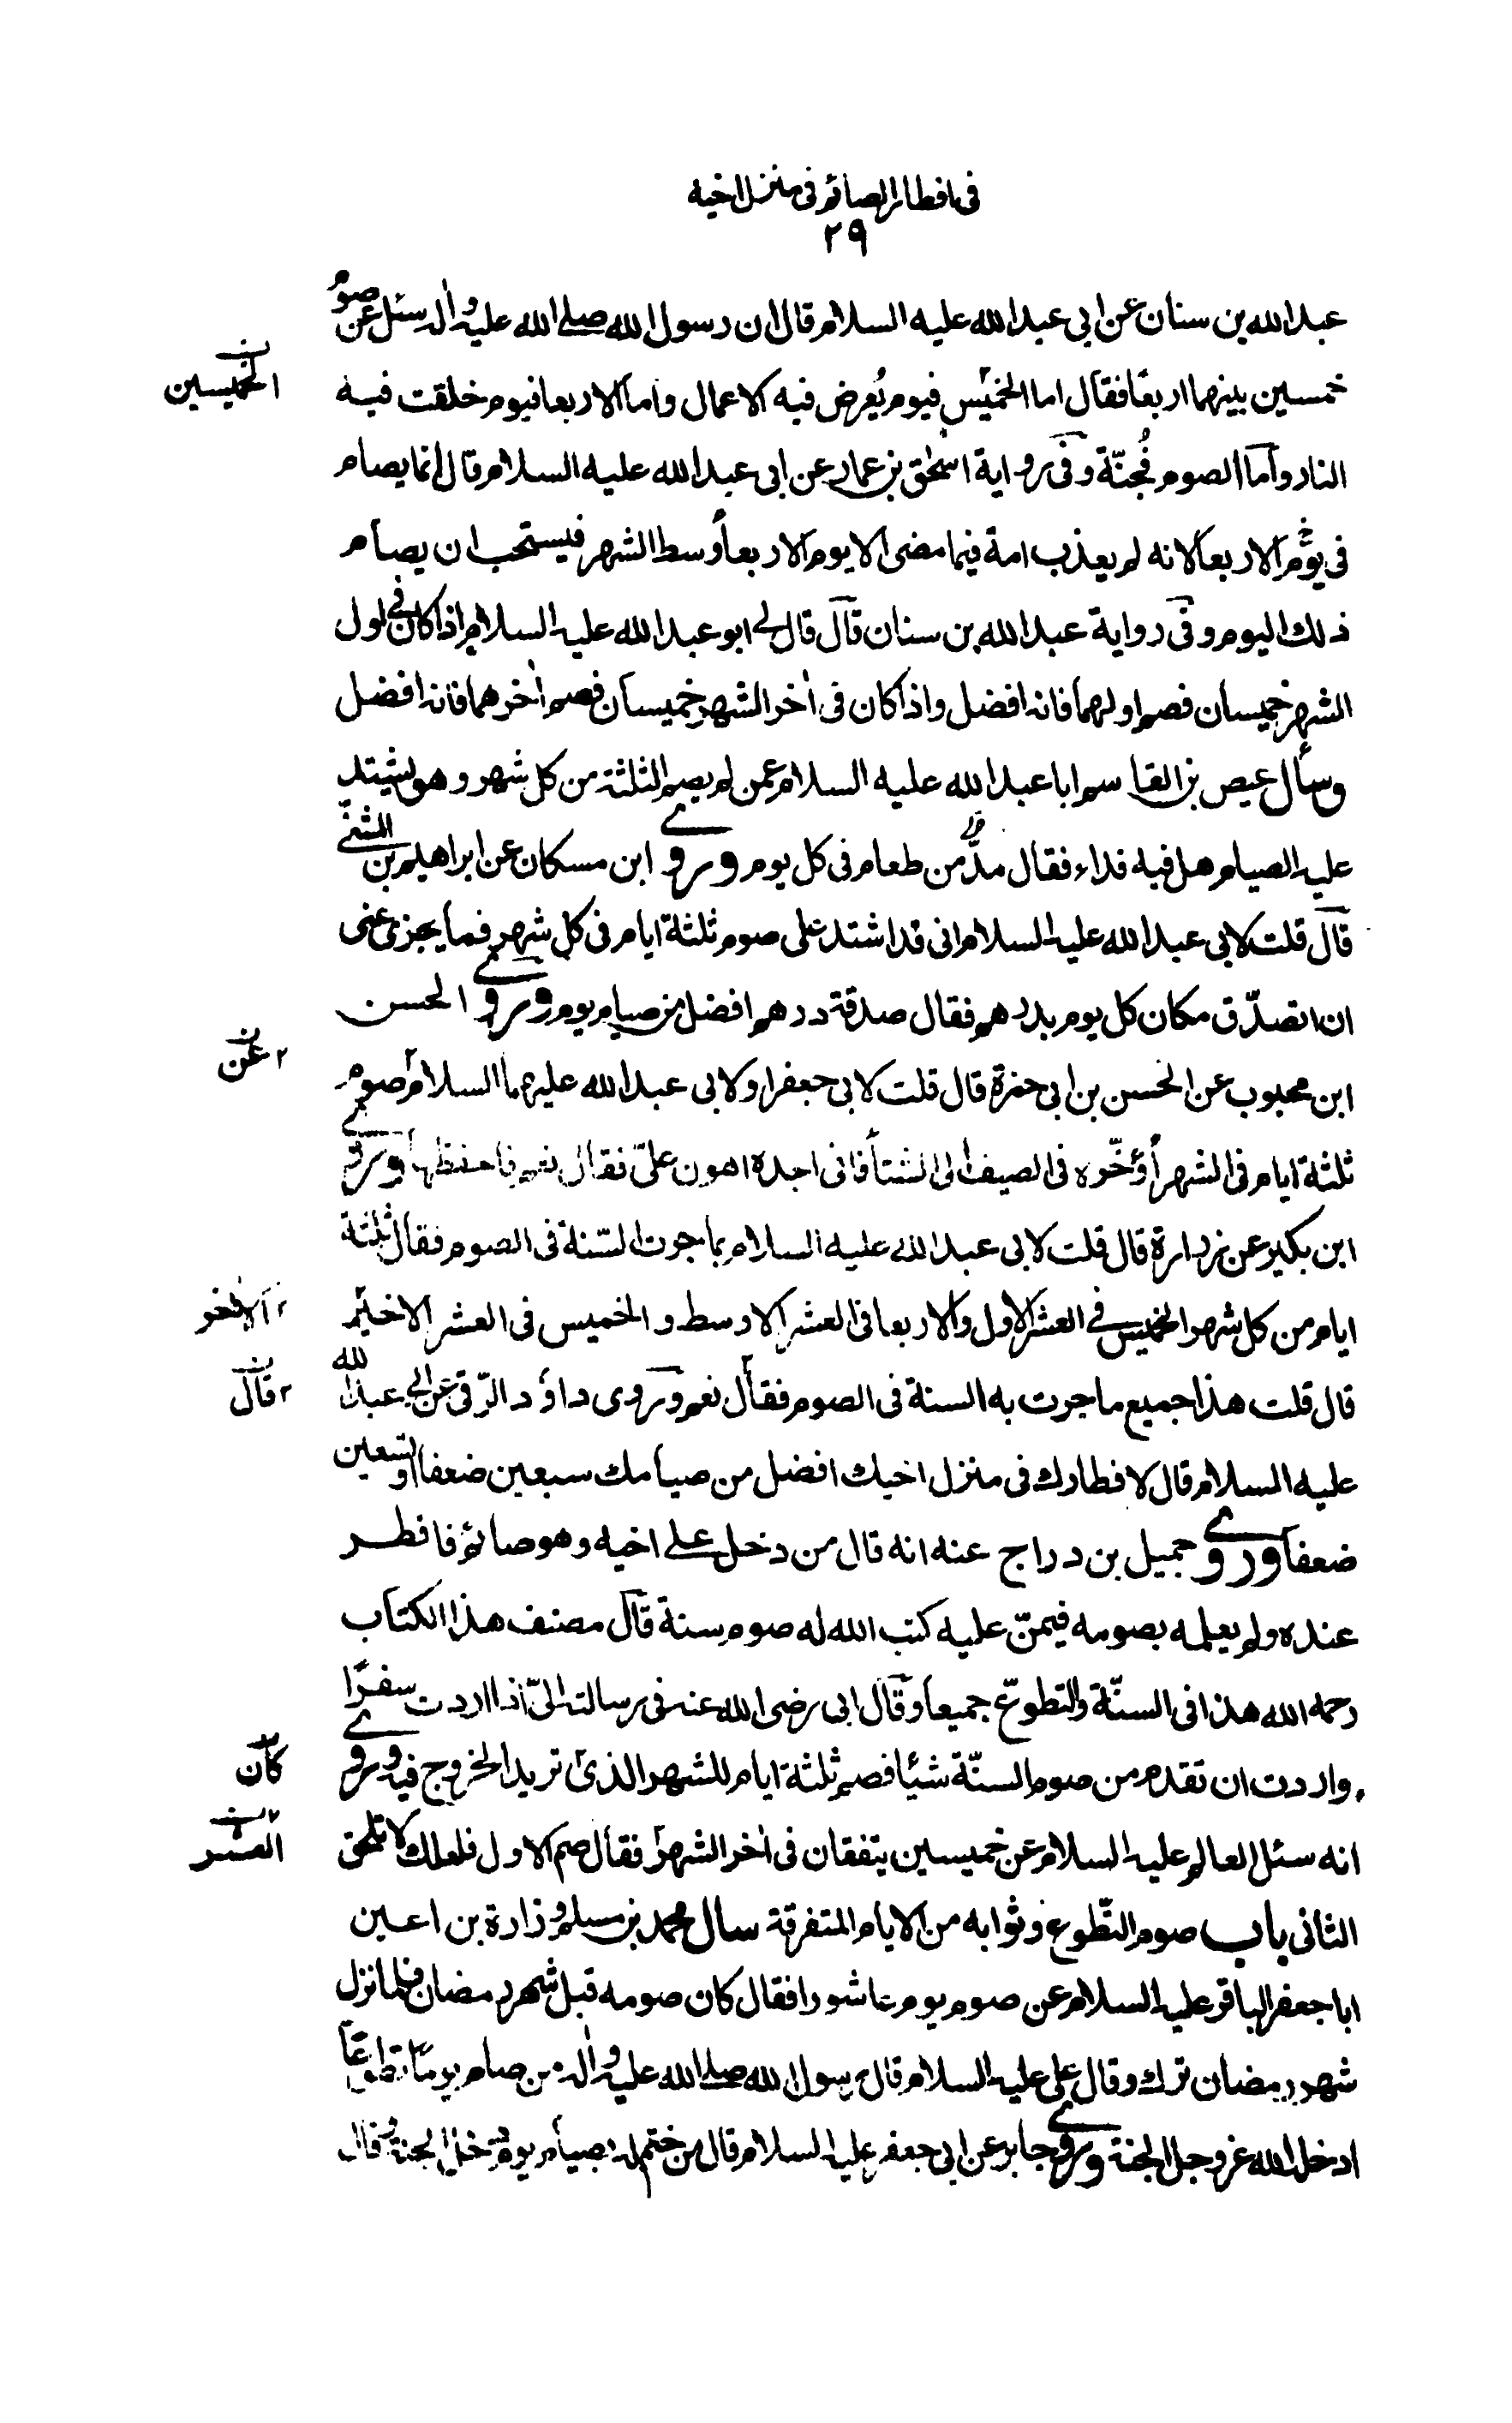 في افطار الصائم في منزل اخيه
٢٩
عبد الله بن سنان عن ابي عبد الله عليه السلام قال ان رسول الله صلى الله عليه وآله سئل عن صوم
خمسين بينهما اربعا فقال اما الخميس فيوم يُعرض فيه الاعمال واما الاربعا فيوم خلقت فيه
الخميسين
النار واما الصوم فجُنّة وفي رواية اسحٰق بن عمار عن ابي عبد الله عليه السلام قال انما يصام
في يوم الاربعا لانه لم يعذب امة فيما مضى الا يوم الاربعا وسط الشهر فيستحب ان يصام
ذلك اليوم وفي رواية عبد الله بن سنان قال قال لي ابو عبد الله عليه السلام اذا كان في اول
الشهر خميسان فصم اولهما فانه افضل واذا كان في اٰخر الشهر خميسان فصم اٰخرهما فانه افضل
وسأل عيص بن القاسم ابا عبد الله عليه السلام عمن لم يصم الثلثة من كل شهر وهو يشتد
عليه الصيام هل فيه فداء فقال مدٌّ من طعام في كل يوم وروى ابن مسكان عن ابراهيم بن المثنى
قال قلت لابي عبد الله عليه السلام اني قد اشتد على صوم ثلثة ايام في كل شهر فما يجزي عني
ان اتصدّق مكان كل يوم بدرهم فقال صدقة درهم افضل من صيام يوم وروى الحسن
ابن محبوب عن الحسن بن ابي حمزة قال قلت لابي جعفر او لابي عبد الله عليهما السلام صوم
٢ عن
ثلثة ايام في الشهر أؤخّره في الصيف الى الشتا فاني اجده اهون عليّ فقال نعم فاحفظها وروى
ابن بكير عن زرارة قال قلت لابي عبد الله عليه السلام بما جرت السّنة في الصوم فقال ثلثة
ايام من كل شهر الخميس في العشر الاول والاربعا في العشر الاوسط والخميس في العشر الاخير
٢ الاٰخر
قال قلت هذا جميع ما جرت به السنة في الصوم فقال نعم وروى داوٗد الرّقي عن ابي عبد الله
٢ قال
عليه السلام قال لافطارك في منزل اخيك افضل من صيامك سبعين ضعفا او تسعين
ضعفا وروى جميل بن دراج عنه انه قال من دخل على اخيه وهو صائم فافطر
عنده ولم يعلمه بصومه فيمنّ عليه كتب الله له صوم سنة قال مصنف هذا الكتاب
رحمه الله هذا في السنّة والتطوّع جميعا وقال ابي رضى الله عنه في رسالته اليّ اذا اردت سفرًا
واردت ان تقدم من صوم السنّة شيئا فصم ثلثة ايام للشهر الذي تريد الخروج فيه وروى
كان
انه سئل العالم عليه السلام عن خميسين يتفقان في اٰخر الشهر فقال صم الاول فلعلك لا تلحق
العشر
الثاني باب صوم التطوع وثوابه من الايام المتفرقة سال محمد بن مسلم وزرارة بن اعين
ابا جعفر الباقر عليه السلام عن صوم يوم عاشورا فقال كان صومه قبل شهر رمضان فلما نزل
شهر رمضان ترك وقال علي عليه السلام قال رسول الله صلى الله عليه وآله من صام يوما تطوعا
ادخله الله عز وجل الجنة وروى جابر عن ابي جعفر عليه السلام قال من ختم له بصيام يوم دخل الجنة وقال